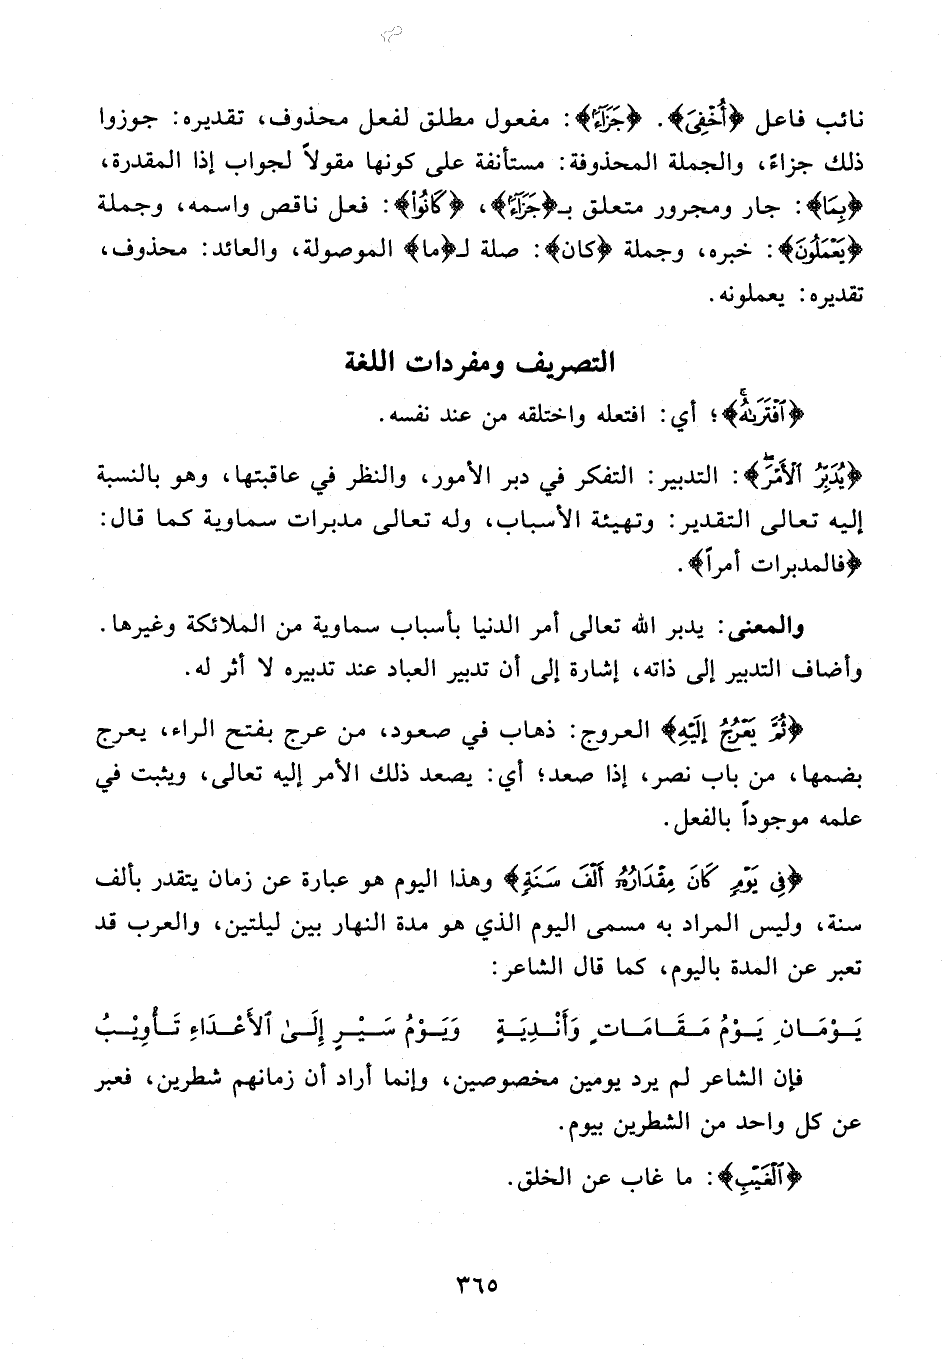 نائب فاعل ﴿أُخْفِىَ﴾. ﴿جَزَآءً﴾: مفعول مطلق لفعل محذوف، تقديره: جوزوا
ذلك جزاءً، والجملة المحذوفة: مستأنفة على كونها مقولاً لجواب إذا المقدرة،
﴿بِمَا﴾: جار ومجرور متعلق بـ﴿جَزَآءً﴾، ﴿كَانُواْ﴾: فعل ناقص واسمه، وجملة
﴿يَعْمَلُونَ﴾: خبره، وجملة ﴿كان﴾: صلة لـ﴿ما﴾ الموصولة، والعائد: محذوف،
تقديره: يعملونه.
التصريف ومفردات اللغة
﴿ٱفْتَرَىٰهُ﴾؛ أي: افتعله واختلقه من عند نفسه.
﴿يُدَبِّرُ ٱلْأَمْرَ﴾: التدبير: التفكر في دبر الأمور، والنظر في عاقبتها، وهو بالنسبة
إليه تعالى التقدير: وتهيئة الأسباب، وله تعالى مدبرات سماوية كما قال:
﴿فالمدبرات أمراً﴾.
والمعنى: يدبر الله تعالى أمر الدنيا بأسباب سماوية من الملائكة وغيرها.
وأضاف التدبير إلى ذاته، إشارة إلى أن تدبير العباد عند تدبيره لا أثر له.
﴿ثُمَّ يَعْرُجُ إِلَيْهِ﴾ العروج: ذهاب في صعود، من عرج بفتح الراء، يعرج
بضمها، من باب نصر، إذا صعد؛ أي: يصعد ذلك الأمر إليه تعالى، ويثبت في
علمه موجوداً بالفعل.
﴿فِى يَوْمٍ كَانَ مِقْدَارُهُۥٓ أَلْفَ سَنَةٍ﴾ وهذا اليوم هو عبارة عن زمان يتقدر بألف
سنة، وليس المراد به مسمى اليوم الذي هو مدة النهار بين ليلتين، والعرب قد
تعبر عن المدة باليوم، كما قال الشاعر:
يَوْمَانِ يَوْمُ مَقَامَاتٍ وَأَنْدِيَةٍ وَيَوْمُ سَيْرٍ إِلَىٰ ٱلأَعْدَاءِ تَأوِيْبُ
فإن الشاعر لم يرد يومين مخصوصين، وإنما أراد أن زمانهم شطرين، فعبر
عن كل واحد من الشطرين بيوم.
﴿ٱلْغَيْبِ﴾: ما غاب عن الخلق.
٣٦٥